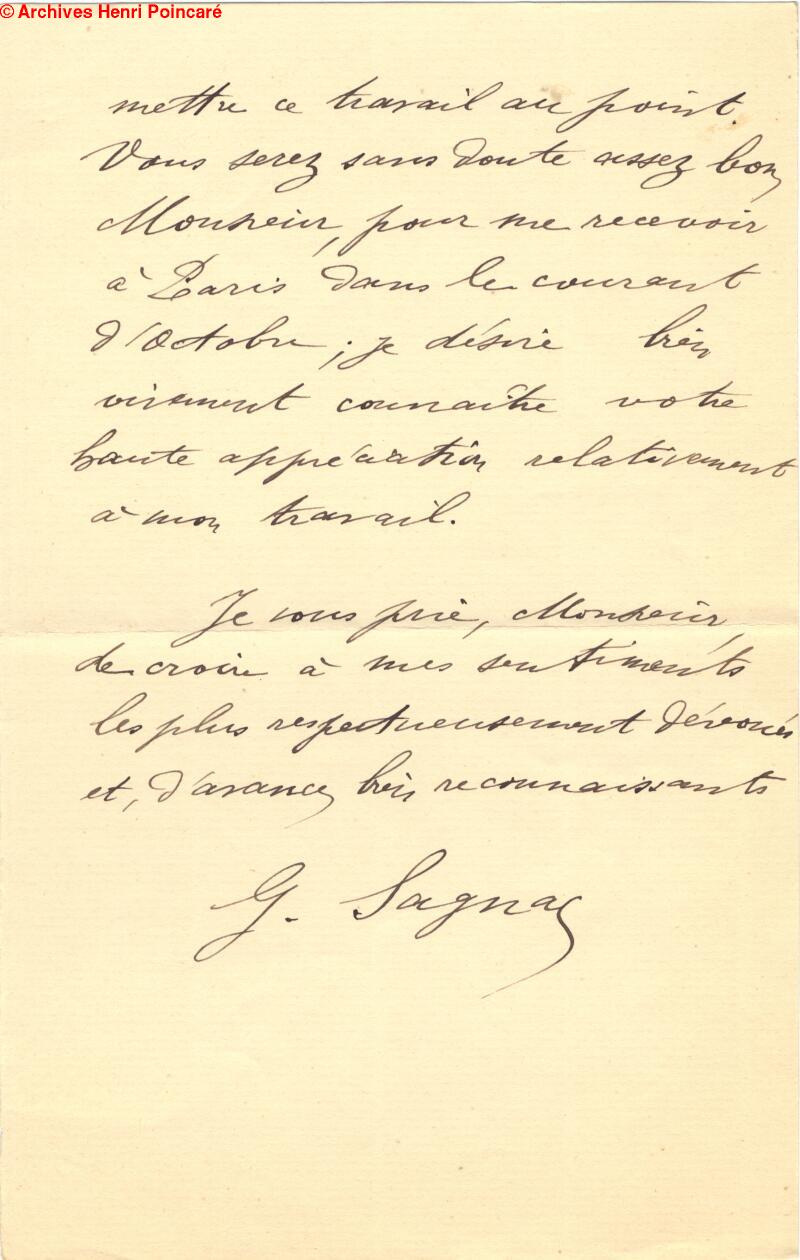 © Archives Henri Poincaré
mettre ce travail au point.
Vous serez sans doute assez bon,
Monsieur, pour me recevoir
à Paris dans le courant
d'Octobre ; je désire bien
vivement connaître votre
haute appréciation relativement
à mon travail.
Je vous prie, Monsieur,
de croire à mes sentiments
les plus respectueusement dévoués
et, d'avance, bien reconnaissants
G. Sagnac